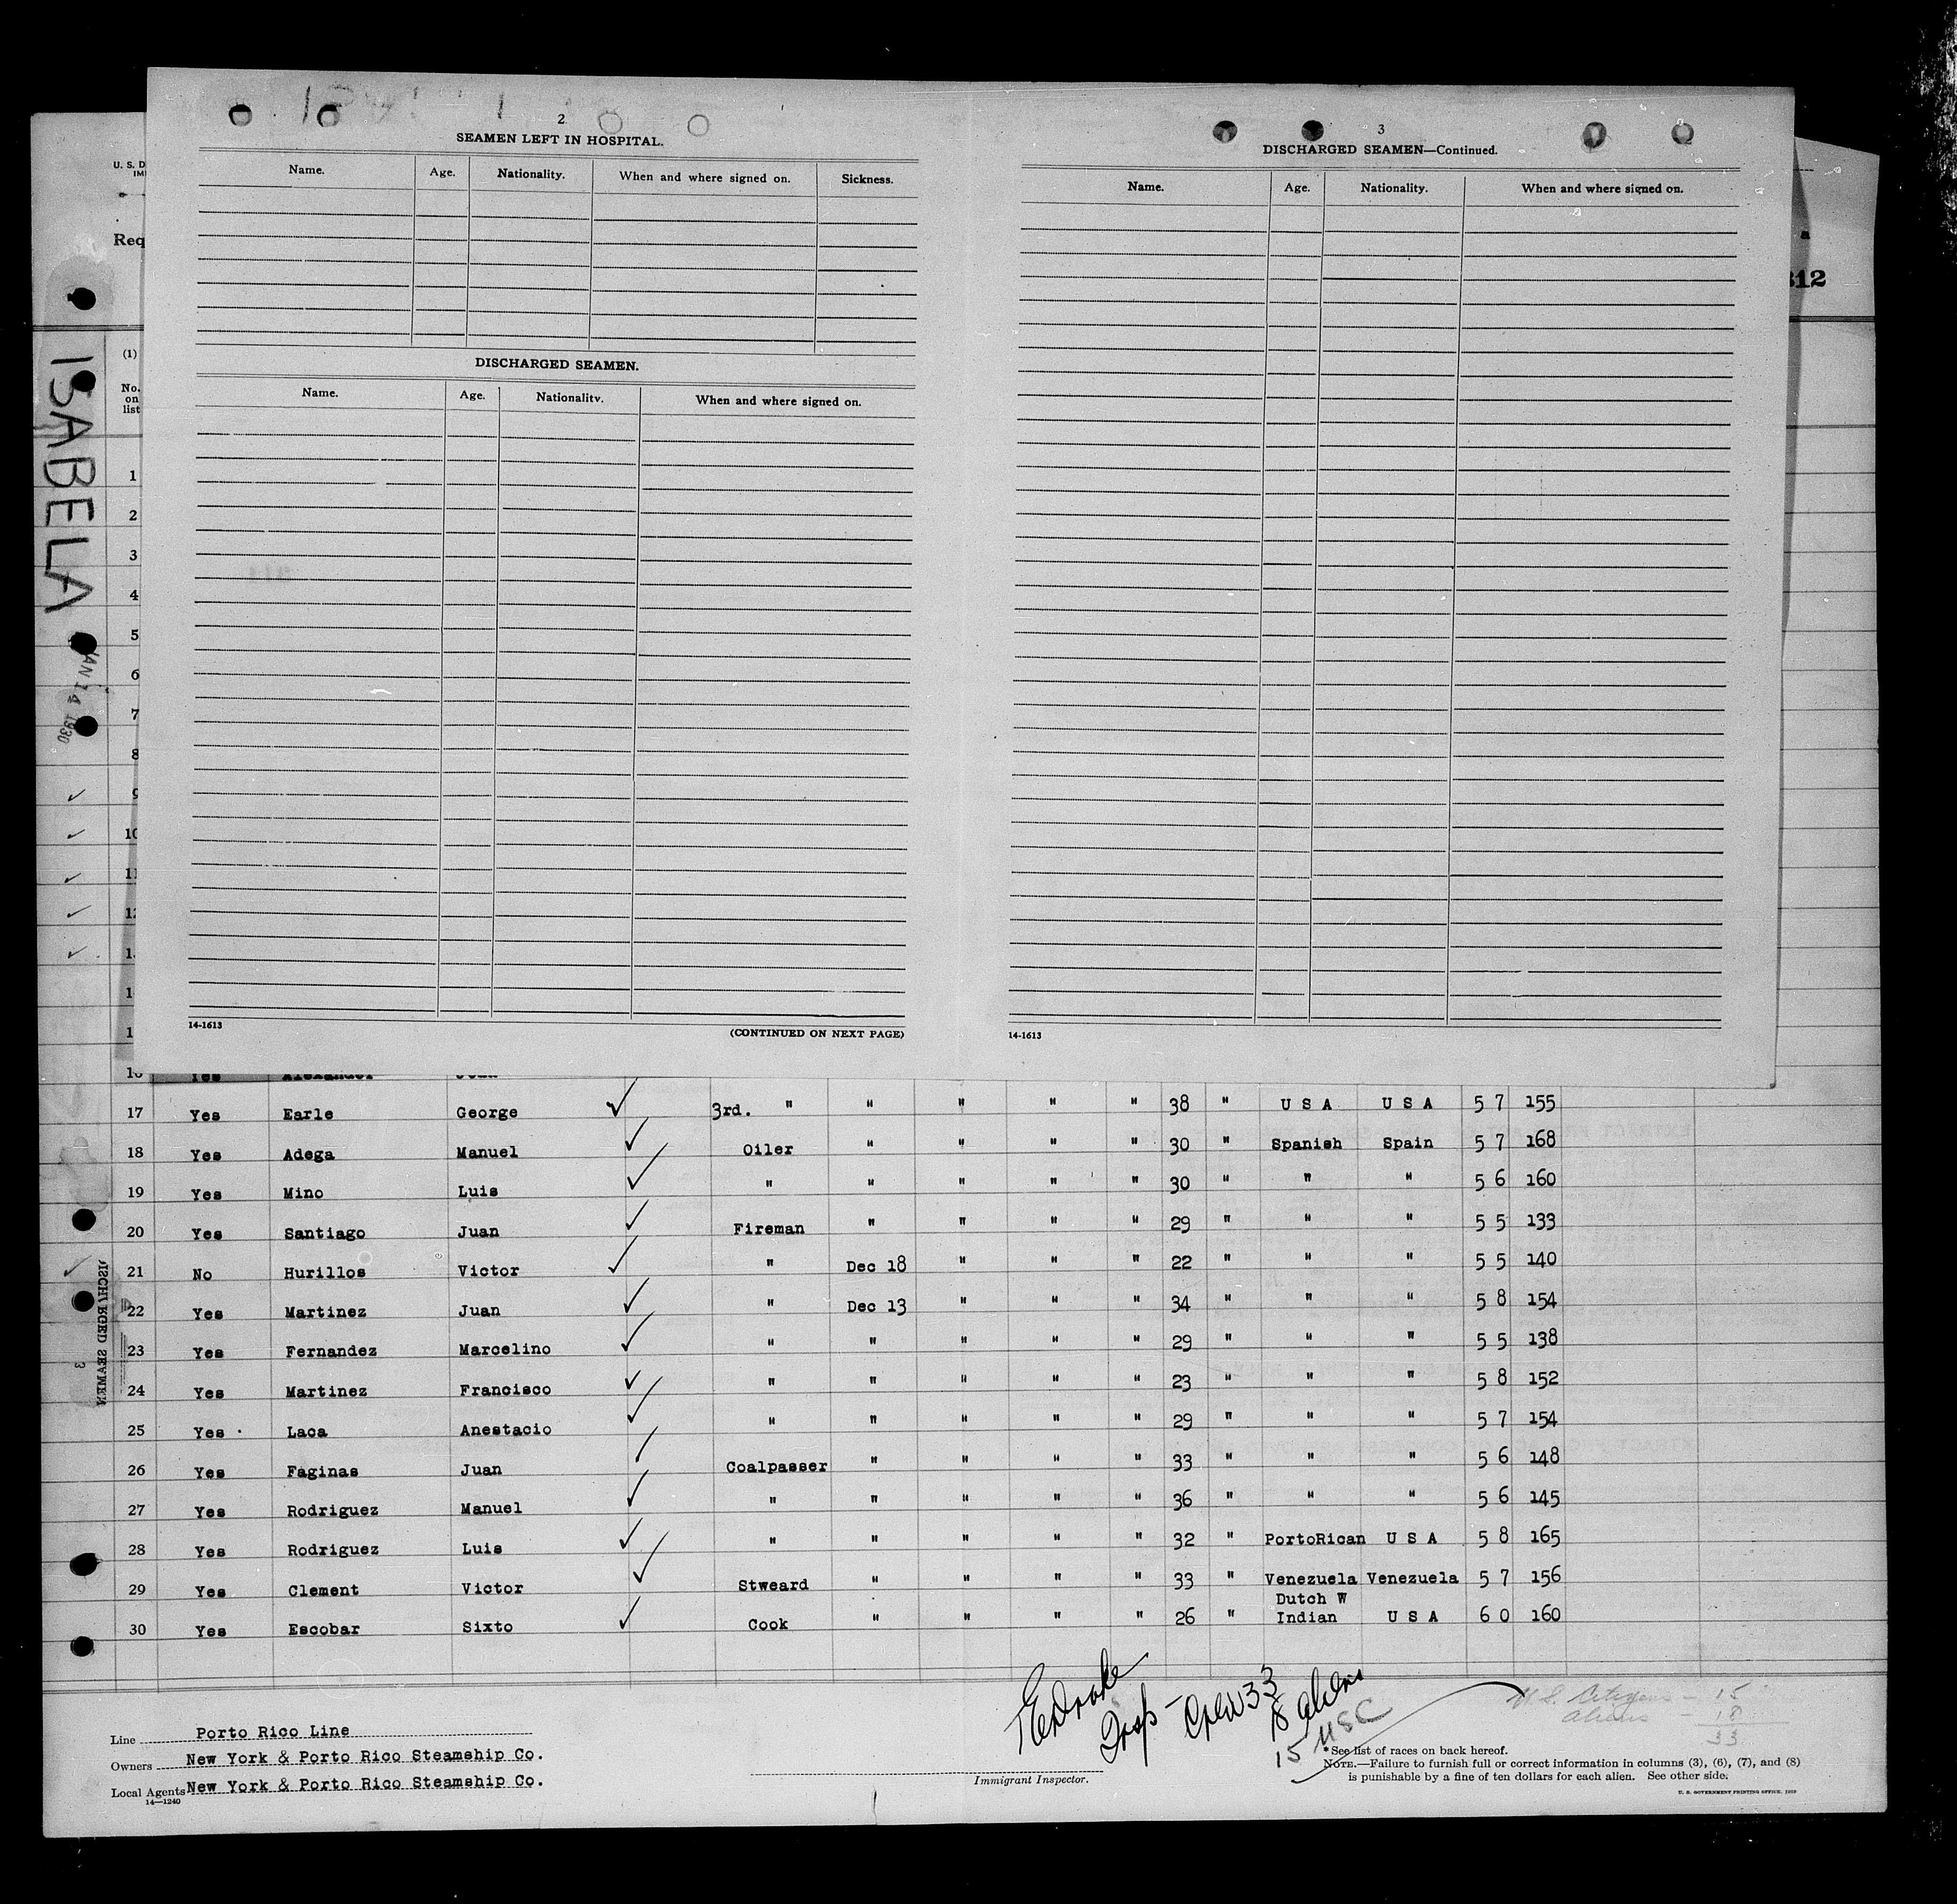 2
SEAMEN LEFT IN HOSPITAL.
Name. Age. Nationality. When and where signed on. Sickness.
DISCHARGED SEAMEN.
Name. Age. Nationality. When and where signed on.
14-1613 (CONTINUED ON NEXT PAGE)
3
DISCHARGED SEAMEN—Continued.
Name. Age. Nationality. When and where signed on.
14-1613
U. S. D
IM
Req
312
(1)
No. on list
ISABELA
JAN 14 1930
1
2
3
4
5
6
7
8
9
10
11
12
16 Yes Alexander
17 Yes Earle George ✓ 3rd. " " " " " 38 " U S A U S A 5 7 155
18 Yes Adega Manuel ✓ Oiler " " " " 30 " Spanish Spain 5 7 168
19 Yes Mino Luis ✓ " " " " " 30 " " " 5 6 160
20 Yes Santiago Juan ✓ Fireman " " " " 29 " " " 5 5 133
21 No Hurillos Victor ✓ " Dec 18 " " " 22 " " " 5 5 140
22 Yes Martinez Juan ✓ " Dec 13 " " " 34 " " " 5 8 154
23 Yes Fernandez Marcelino ✓ " " " " " 29 " " " 5 5 138
24 Yes Martinez Francisco ✓ " " " " " 23 " " " 5 8 152
25 Yes Laca Anestacio ✓ " " " " " 29 " " " 5 7 154
26 Yes Faginas Juan ✓ Coalpasser " " " " 33 " " " 5 6 148
27 Yes Rodriguez Manuel ✓ " " " " " 36 " " " 5 6 145
28 Yes Rodriguez Luis ✓ " " " " " 32 " PortoRican U S A 5 8 165
29 Yes Clement Victor ✓ Stweard " " " " 33 " Venezuela Venezuela 5 7 156
30 Yes Escobar Sixto ✓ Cook " " " " 26 " Dutch W Indian U S A 6 0 160
DISCHARGED SEAMEN
3
Line Porto Rico Line
Owners New York & Porto Rico Steamship Co.
Local Agents New York & Porto Rico Steamship Co.
14—1240
Insp — Crew 33
18 aliens
15 USC
Immigrant Inspector.
U. S. Citizens — 15
aliens — 18
33
*See list of races on back hereof.
NOTE.—Failure to furnish full or correct information in columns (3), (6), (7), and (8)
is punishable by a fine of ten dollars for each alien. See other side.
U. S. GOVERNMENT PRINTING OFFICE.